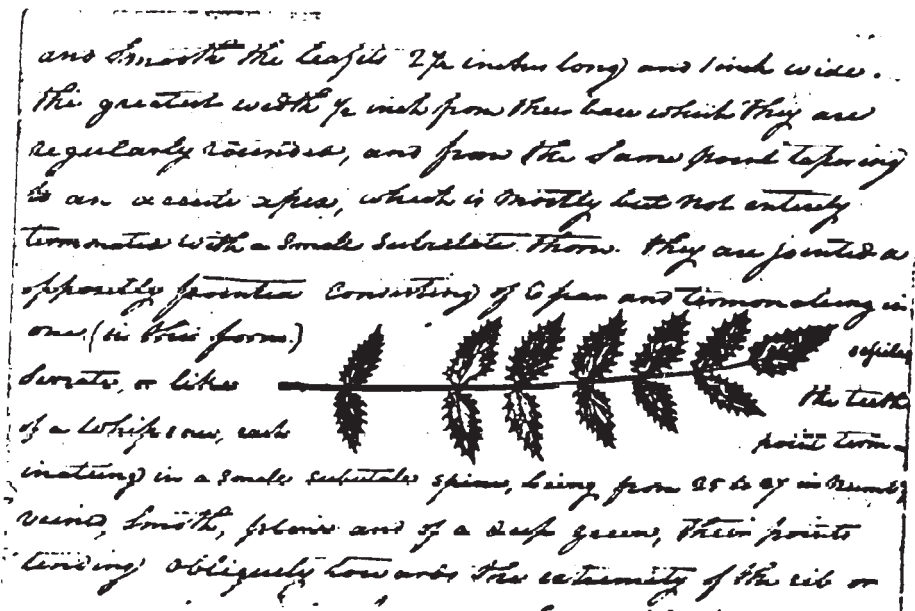 and smooth the leafits 2½ inches long and 1 inch wide.
the greatest width ½ inch from their base which they are
regularly rounded, and from the same point tapering
to an accute apex, which is mostly but not entirely
termonated with a small subulate thorn. they are jointed &
oppositly pointed consisting of 6 pair and termonateing in
one (in this form.) sessile
serrate, or like the teeth
of a whipsaw, each point term-
inating in a small subulate spine, being from 25 to 27 in numb
veined, smoth, plane and of a deep green, their points
tending obliquely towards the extremity of the rib or